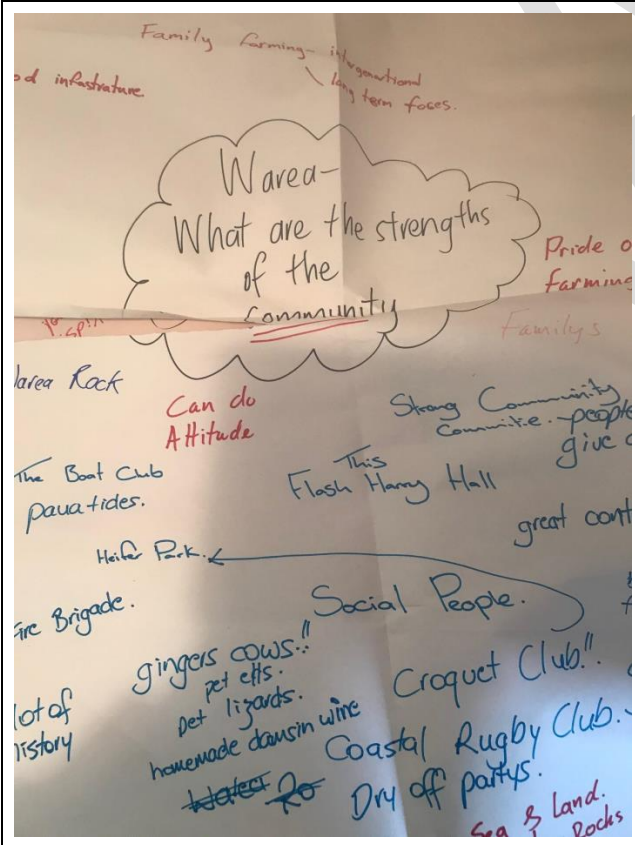 Family farming - intergenerational
long term foces.
od infastrature
Warea-
What are the strengths
of the
community
Pride o
farming
Familys
larea Rock
Can do
Attitude
Strong Community
Committe. - people
give
The Boat Club
paua tides.
This
Flash Harry Hall
great cont
Heifer Park.
Social People.
ire Brigade.
gingers cows!!
pet
pet lizards.
homemade damsin wine
Croquet Club!!
lot of
history
Coastal Rugby Club.
Water Ro
Dry off partys.
Sea & Land.
Rocks